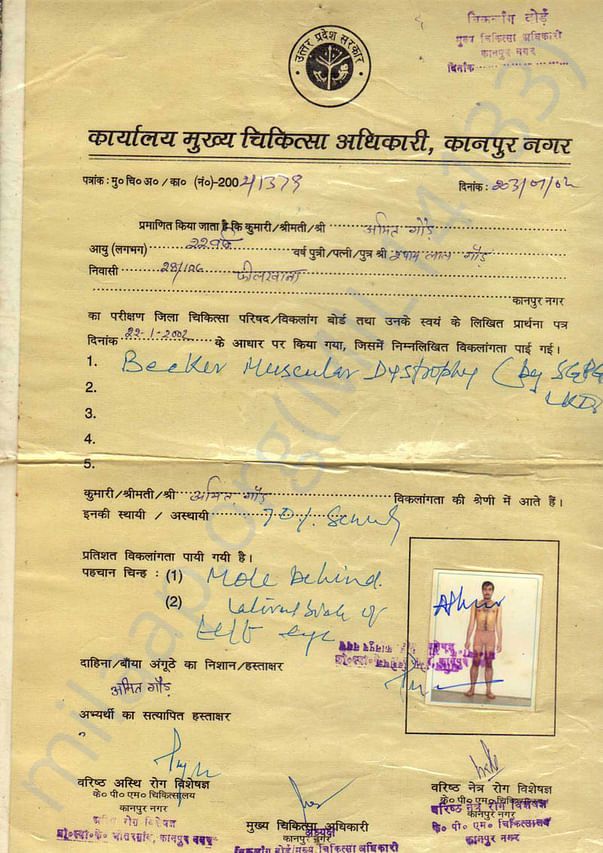 विकलांग बोर्ड
मुख्य चिकित्सा अधिकारी
कानपुर नगर
दिनांक
उत्तर प्रदेश सरकार
कार्यालय मुख्य चिकित्सा अधिकारी, कानपुर नगर
पत्रांक: मु० चि० अ० / का० (नं०)-200 2/1379 दिनांक:
प्रमाणित किया जाता है कि कुमारी/श्रीमती/श्री अमित गौड़
आयु (लगभग) 22 वर्ष वर्ष पुत्री/पत्नी/पुत्र श्री श्याम लाल गौड़
निवासी 28/126 फीलखाना
कानपुर नगर
का परीक्षण जिला चिकित्सा परिषद/विकलांग बोर्ड तथा उनके स्वयं के लिखित प्रार्थना पत्र
दिनांक 22-1-2002 के आधार पर किया गया, जिसमें निम्नलिखित विकलांगता पाई गई।
1. Becker Muscular Dystrophy (by SGPG
LKO)
2.
3.
4.
5.
कुमारी/श्रीमती/श्री अमित गौड़ विकलांगता की श्रेणी में आते हैं।
इनकी स्थायी / अस्थायी 70%
प्रतिशत विकलांगता पायी गयी है।
पहचान चिन्ह : (1) Mole behind
(2) lateral side of
left eye
दाहिना/बाँया अंगूठे का निशान/हस्ताक्षर
अमित गौड़
अभ्यर्थी का सत्यापित हस्ताक्षर
वरिष्ठ अस्थि रोग विशेषज्ञ
के० पी० एम० चिकित्सालय
कानपुर नगर
मुख्य चिकित्सा अधिकारी
कानपुर नगर
अध्यक्ष
विकलांग बोर्ड/मुख्य चिकित्सा अधिकारी
वरिष्ठ नेत्र रोग विशेषज्ञ
के० पी० एम० चिकित्सालय
कानपुर नगर
वरिष्ठ नेत्र रोग विशेषज्ञ
के० पी० एम० चिकित्सालय
कानपुर नगर